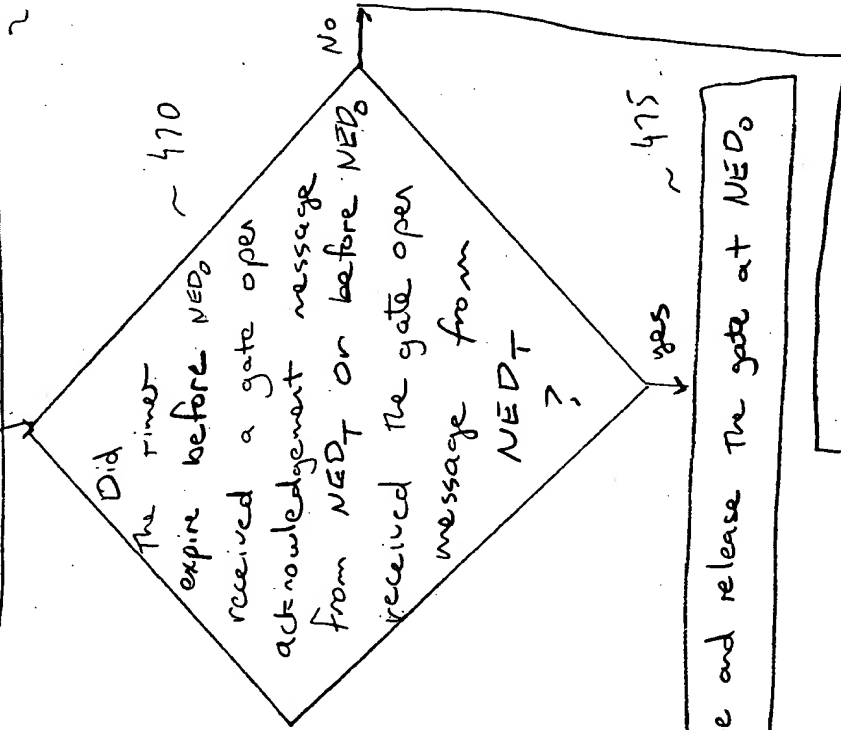 ~ 470
Did
The timer
expire before NED₀
received a gate open
acknowledgement message
from NED_T or before NED₀
received the gate open
message from
NED_T
?
No
yes
~ 475
e and release the gate at NED₀